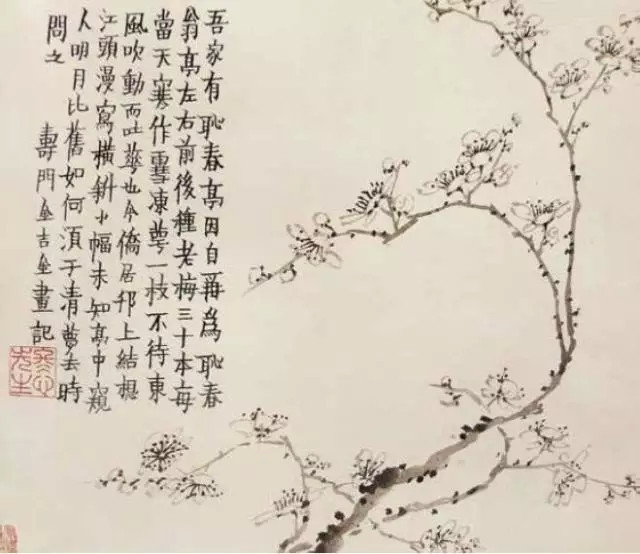 吾家有恥春亭因自爯爲恥春
翁亭左右前後種老梅三十本每
當天寒作雪凍萼一枝不待東
風吹動而吐華也今僑居邗上結想
江頭漫寫橫斜小幅未知亭中窺
人明月比舊如何須于清夢去時
問之
壽門金吉金畫記
冬心先生